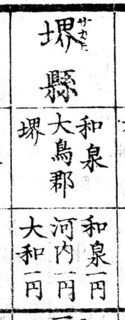 堺縣
サカヒ
和泉
大鳥郡
堺
和泉一円
河内一円
大和一円